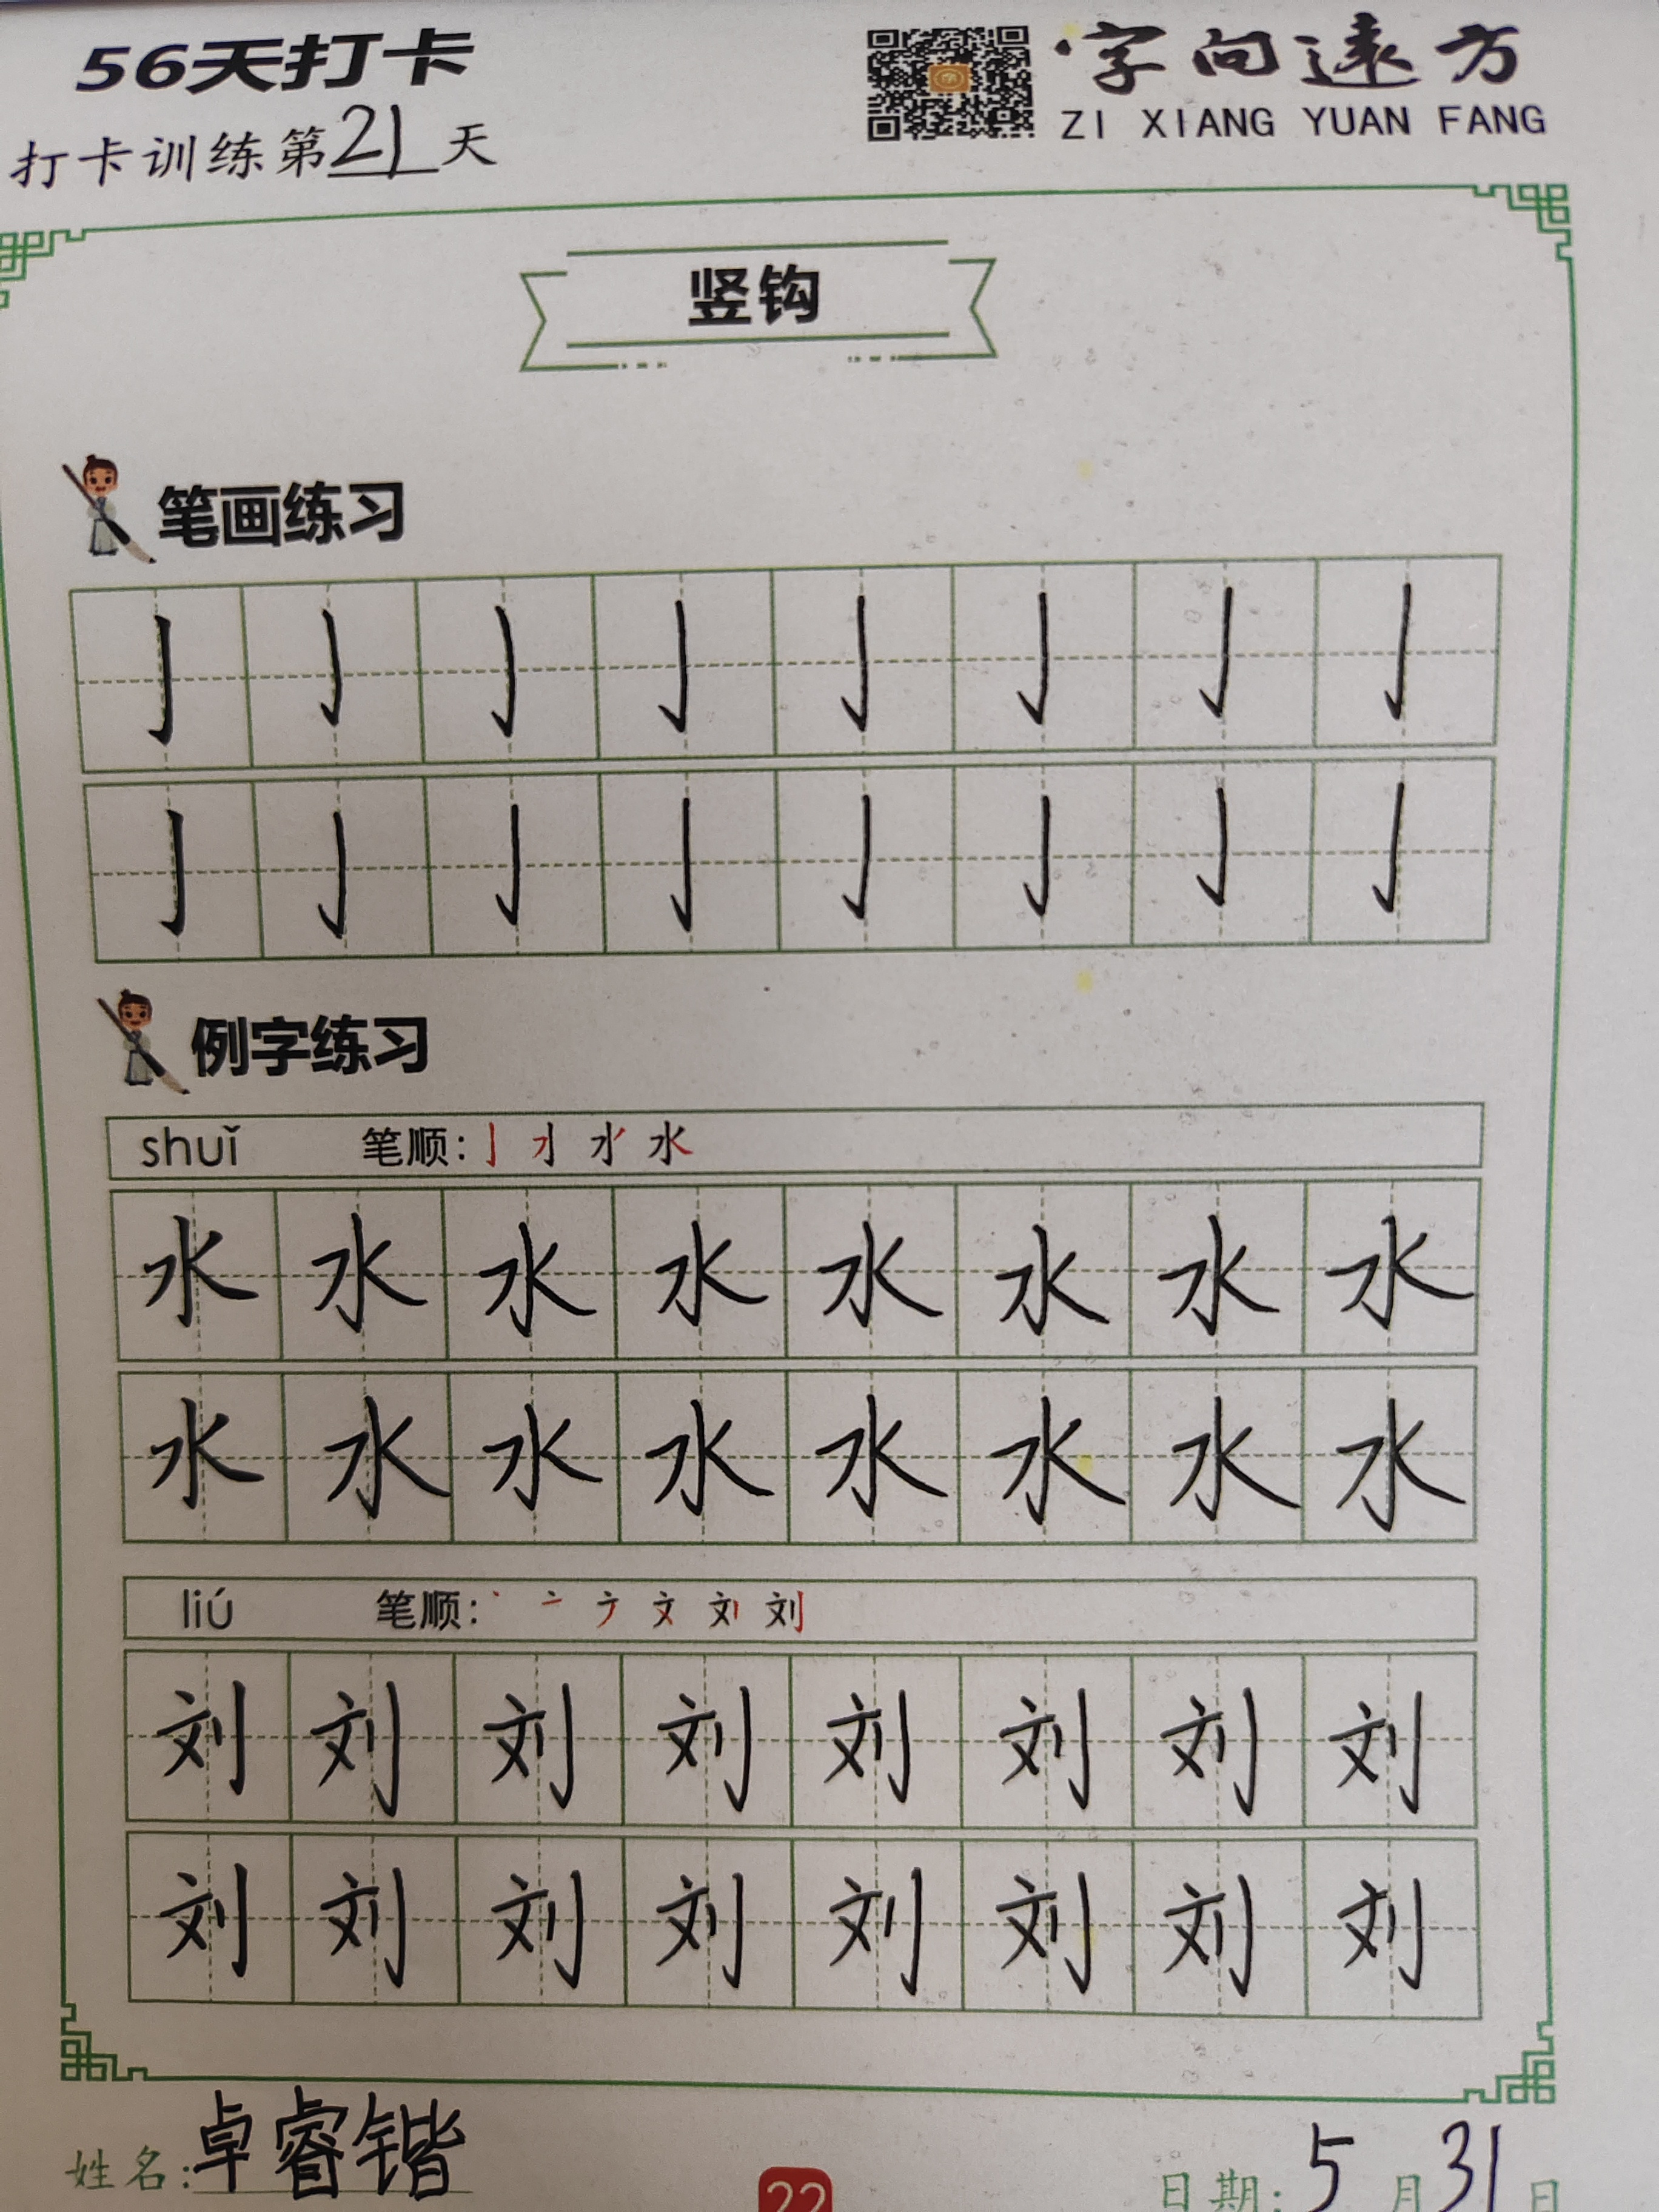 56天打卡
字向远方
ZI XIANG YUAN FANG
打卡训练第21天
竖钩
笔画练习
亅亅亅亅亅亅亅亅
亅亅亅亅亅亅亅亅
例字练习
shuǐ 笔顺: 水
水水水水水水水水
水水水水水水水水
liú 笔顺: 丶 亠 文 刘
刘刘刘刘刘刘刘刘
刘刘刘刘刘刘刘刘
姓名:卓睿锴
22
日期: 5月31日